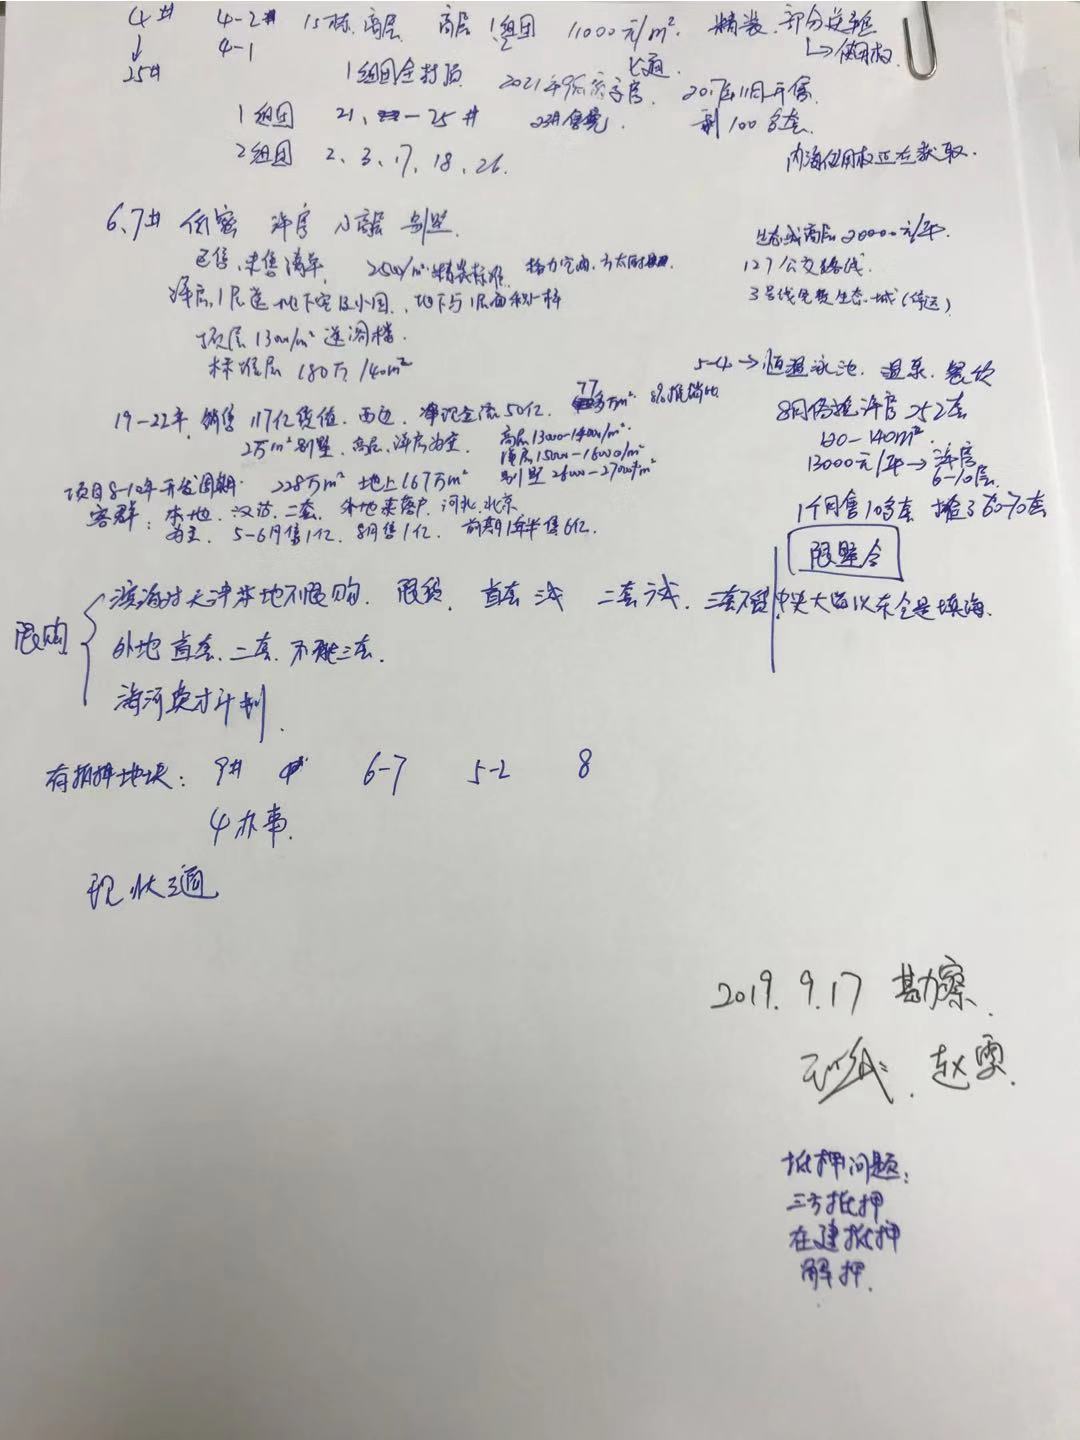 4# 4-2# 15栋.高层. 高层 1组团 11000元/m². 精装.部分
↓ 4-1 2 ↳使用权
25# 1组团全封顶 2021年 2017年11月开售.
1组团 21、—25# 售完. 剩100多套.
2组团 2、3、17、18、26. 内海使用权正在获取.
6、7# 低密 洋房 小高层 别墅. 生态城高层20000元/平
已售、未售清单. 2500/m²精装标准. 格力空调. 127公交路线.
洋房1层送地下室及小园. 地下与1层面积一样 3号线免费生态城(停运)
顶层13000/m²送阁楼.
标准层 180万/140m² 5-4→恒温泳池. 温泉. 餐饮
19-22年 销售 117亿货值. 西边. 净现金流50亿. 77万m². 8月份推洋房252套
2万m²别墅. 高层、洋房为主. 高层13000-14000/m². 120-140m².
洋房15000-16000/m² 13000元/平→洋房
项目8-10年开发周期. 228万m² 地上167万m² 别墅26000-27000/m² 6-10层.
客群: 本地、汉沽、二套. 外地来落户. 河北.北京 1个月售10多套
为主. 5-6月售1亿. 8月售1亿. 前期1年半售6亿. 限墅令
限购 滨海对天津本地不限购. 限贷. 首套三成 二套六成. 三套不贷 中央大道以东全是填海.
外地 首套、二套. 三套.
海河英才计划.
有抵押地块: 9# 6-7 5-2 8
4办事.
现状三通
2019.9.17 勘察.
赵雯.
抵押问题:
三方抵押
在建抵押
解押.